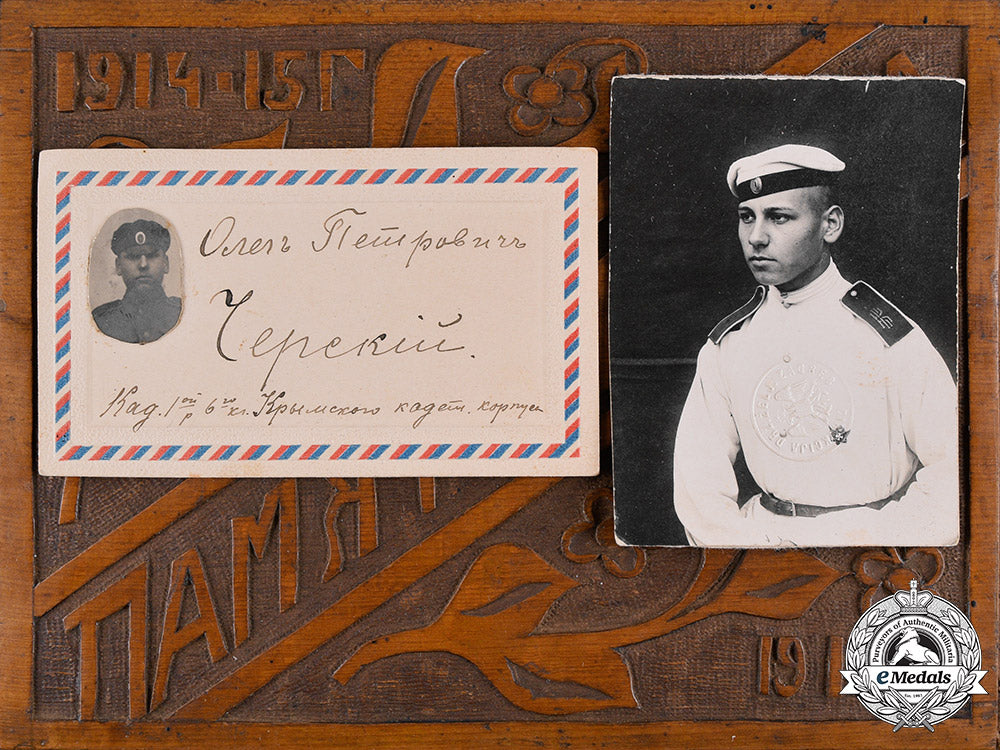 1914-15Г
Олегъ Петровичъ
Черскій.
Кад. 1ой р 6го кл. Крымского кадет. корпуса
ПАМЯТ
191
Purveyors of Authentic Militaria
eMedals